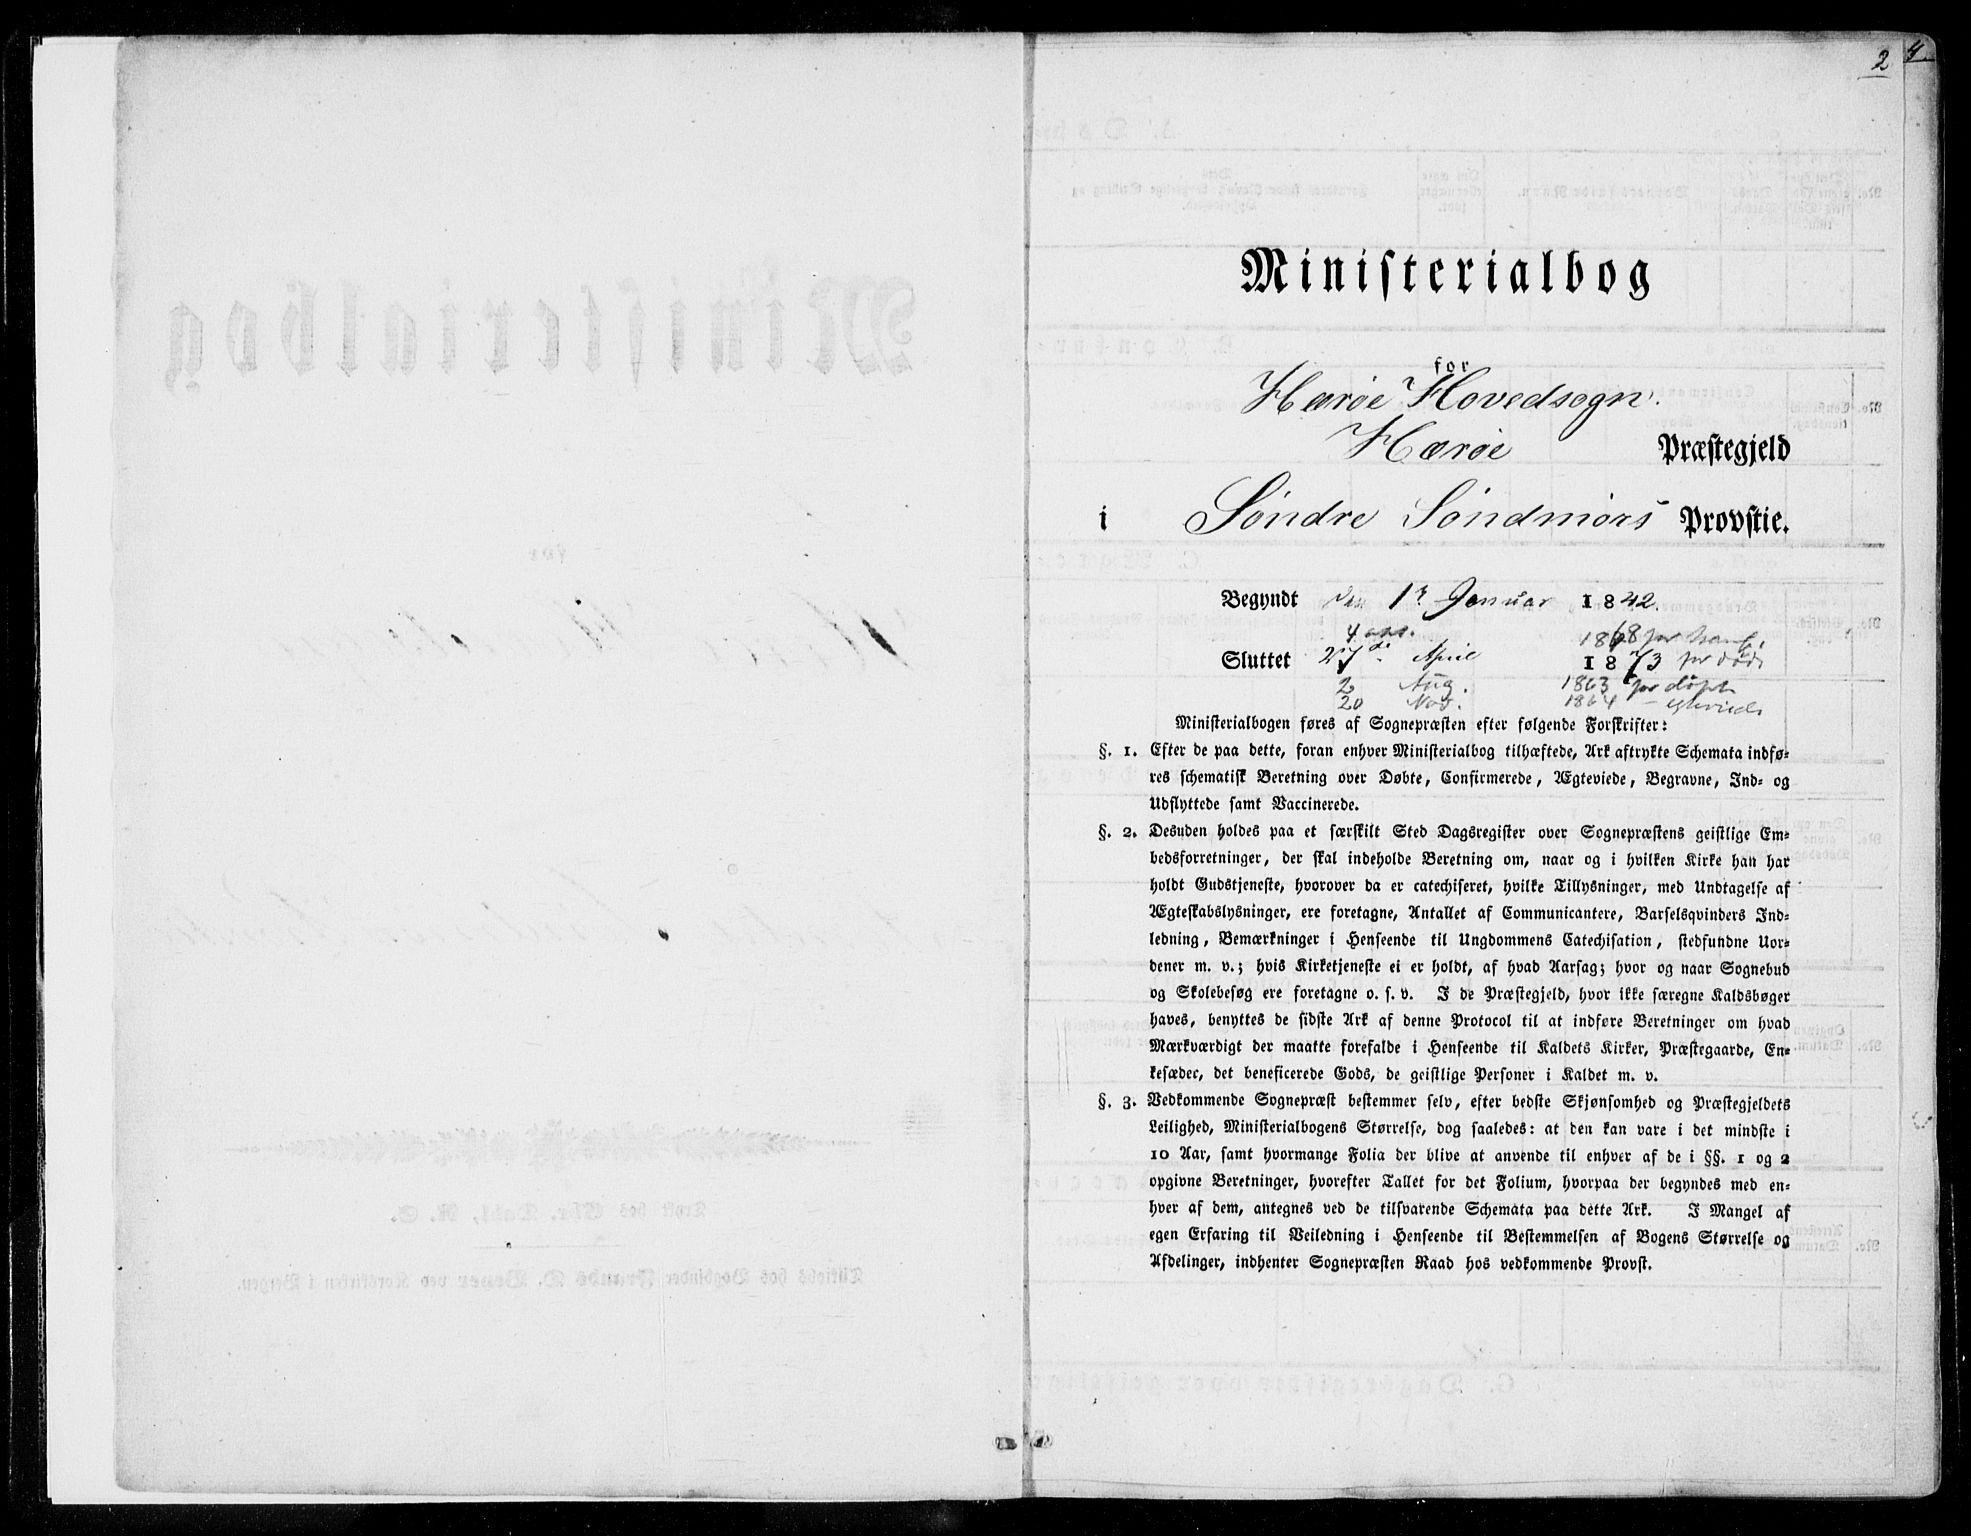 2 4.
Ministerialbog
for
Herøe Hovedsogn.
Herøe Præstegjeld
i Söndre Söndmörs Provstie.
Begyndt den 1ste Januar 1842.
4 1868 for
Sluttet 27de April 1873 for døde
2 Aug. 1863 for døpte
20 Nov. 1864 –
Ministerialbogen føres af Sognepræsten efter følgende Forskrifter:
§. 1. Efter de paa dette, foran enhver Ministerialbog tilhæftede, Ark aftrykte Schemata indfø-
res schematisk Beretning over Døbte, Confirmerede, Ægteviede, Begravne, Ind- og
Udflyttede samt Vaccinerede.
§. 2. Desuden holdes paa et særskilt Sted Dagsregister over Sognepræstens geistlige Em-
bedsforretninger, der skal indeholde Beretning om, naar og i hvilken Kirke han har
holdt Gudstjeneste, hvorover da er catechiseret, hvilke Tillysninger, med Undtagelse af
Ægteskabslysninger, ere foretagne, Antallet af Communicantere, Barselqvinders Ind-
ledning, Bemærkninger i Henseende til Ungdommens Catechisation, stedfundne Uor-
dener m. v.; hvis Kirketjeneste ei er holdt, af hvad Aarsag; hvor og naar Sognebud
og Skolebesøg ere foretagne o. s. v. I de Præstegjeld, hvor ikke særegne Kaldsbøger
haves, benyttes de sidste Ark af denne Protocol til at indføre Beretninger om hvad
Mærkværdigt der maatte forefalde i Henseende til Kaldets Kirker, Præstegaarde, En-
kesæder, det beneficerede Gods, de geistlige Personer i Kaldet m. v.
§. 3. Vedkommende Sognepræst bestemmer selv, efter bedste Skjønsomhed og Præstegjeldets
Leilighed, Ministerialbogens Størrelse, dog saaledes: at den kan vare i det mindste i
10 Aar, samt hvormange Folia der blive at anvende til enhver af de i §§. 1 og 2
opgivne Beretninger, hvorefter Tallet for det Folium, hvorpaa der begyndes med en-
hver af dem, antegnes ved de tilsvarende Schemata paa dette Ark. I Mangel af
egen Erfaring til Veiledning i Henseende til Bestemmelsen af Bogens Størrelse og
Afdelinger, indhenter Sognepræsten Raad hos vedkommende Provst.